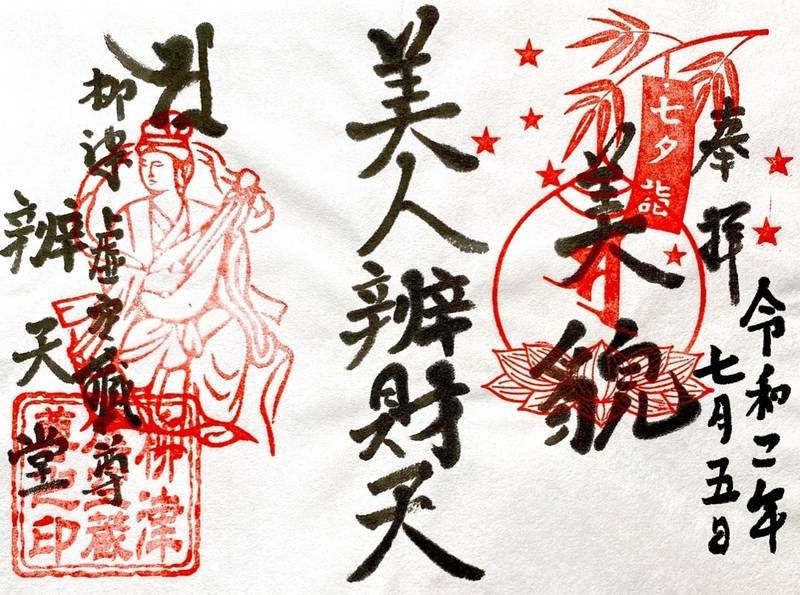 奉拝
令和二年
七月五日
七夕
美貌
美人辨財天
柳津虚空藏尊
辨天堂
柳津
虚空蔵
尊之印